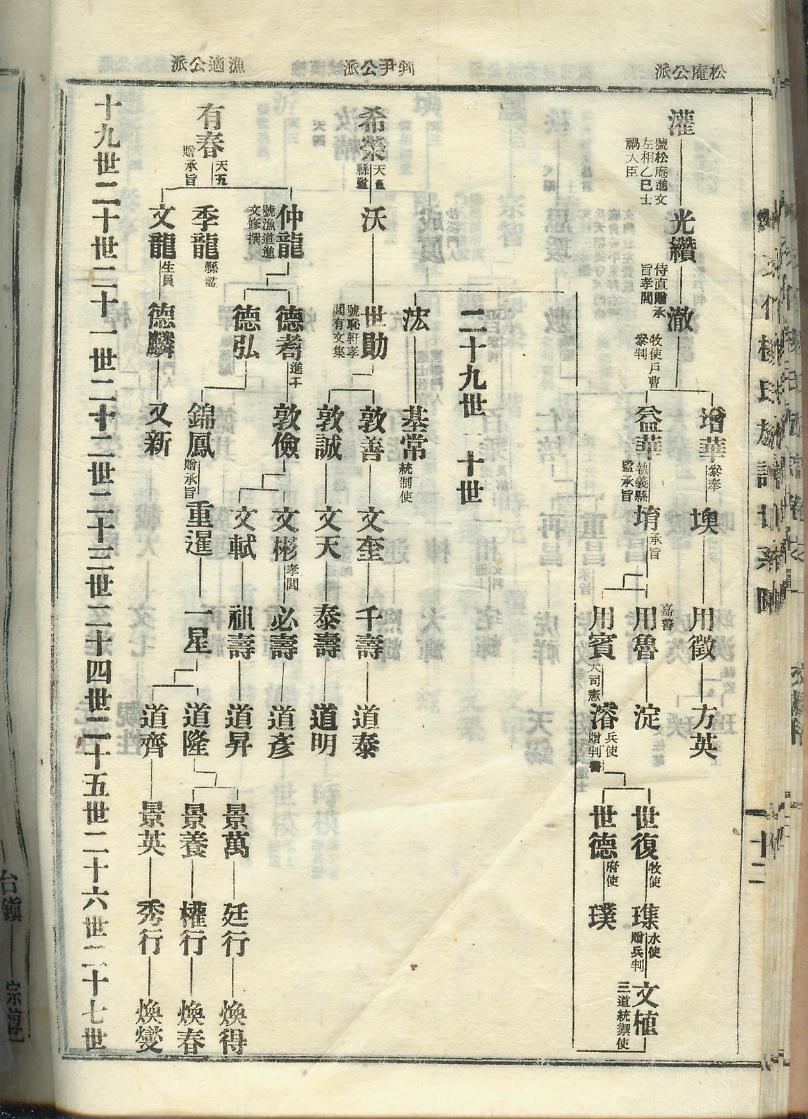 松庵公派
判尹公派
漁適公派
灌
號松庵進文
左相乙巳士
禍大臣
光纘
侍直贈承
旨孝閭
澈
牧使戶曹
參判
增華
參奉
墺
用徵
方英
益華
執義縣
監承旨
堉
承旨
用魯
嘉善
淀
用賓
大司憲
濬
兵使
贈判書
世復
牧使
璞
世德
府使
水使
贈兵判
文植
三道統禦使
二十九世
十世
浤
基常
統制使
希榮
縣監
沃
世勛
號恥軒孝
閭有文集
敦善
文奎
千壽
道泰
敦誠
文天
泰壽
道明
有春
贈承旨
仲龍
號漁適進
文修撰
德耇
敦儉
文彬
孝閭
必壽
道彥
文軾
祖壽
道昇
德弘
錦鳳
贈承旨
重暹
一星
道隆
景萬
廷行
煥得
景養
權行
煥春
道齊
景英
秀行
煥燮
季龍
縣監
文龍
生員
德麟
又新
十九世二十世二十一世二十二世二十三世二十四世二十五世二十六世二十七世
十二
台鎭
宗淳